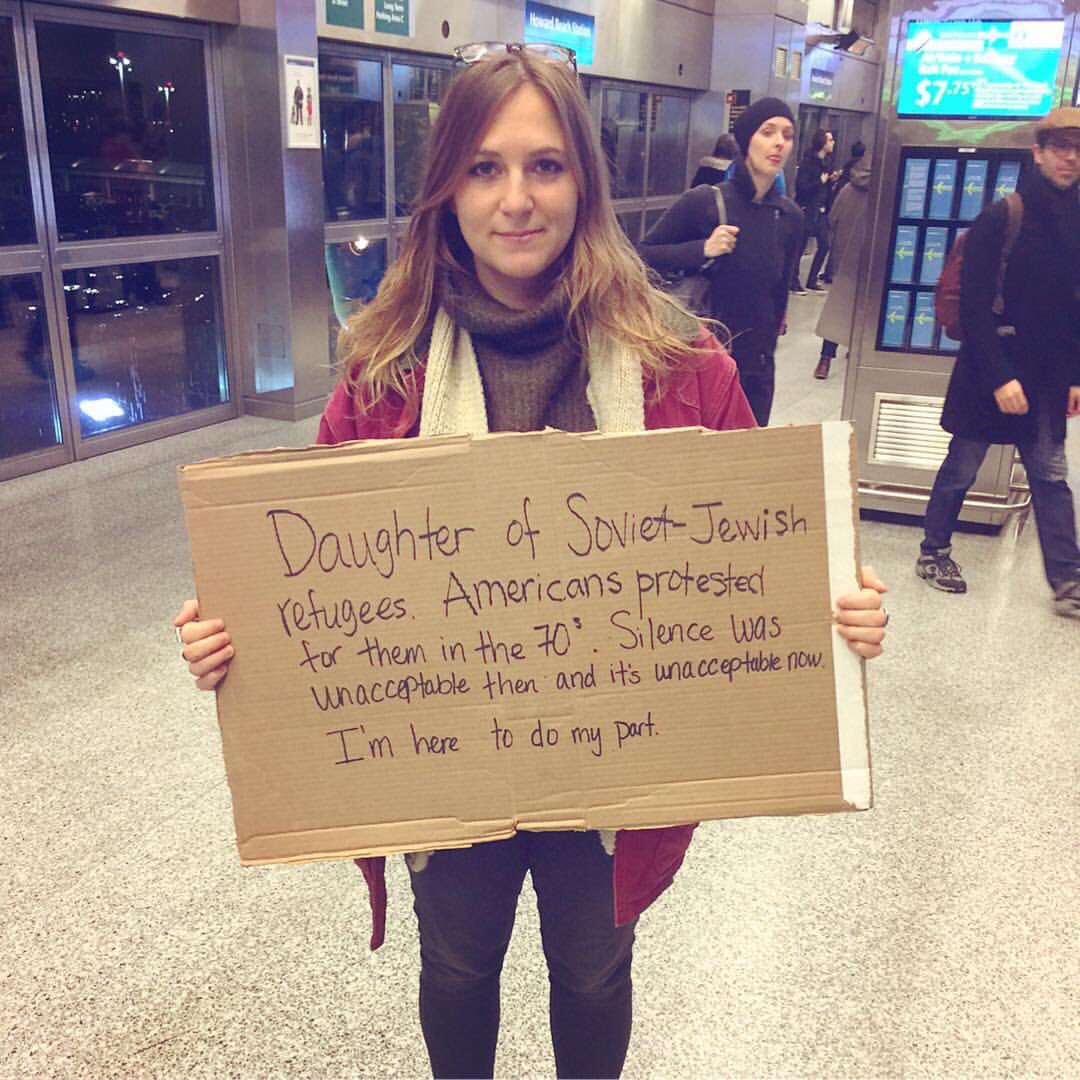 Long Term
Parking Area C
Howard Beach Station
$7.75
Daughter of Soviet-Jewish
refugees. Americans protested
for them in the 70s. Silence was
unacceptable then and it's unacceptable now.
I'm here to do my part.